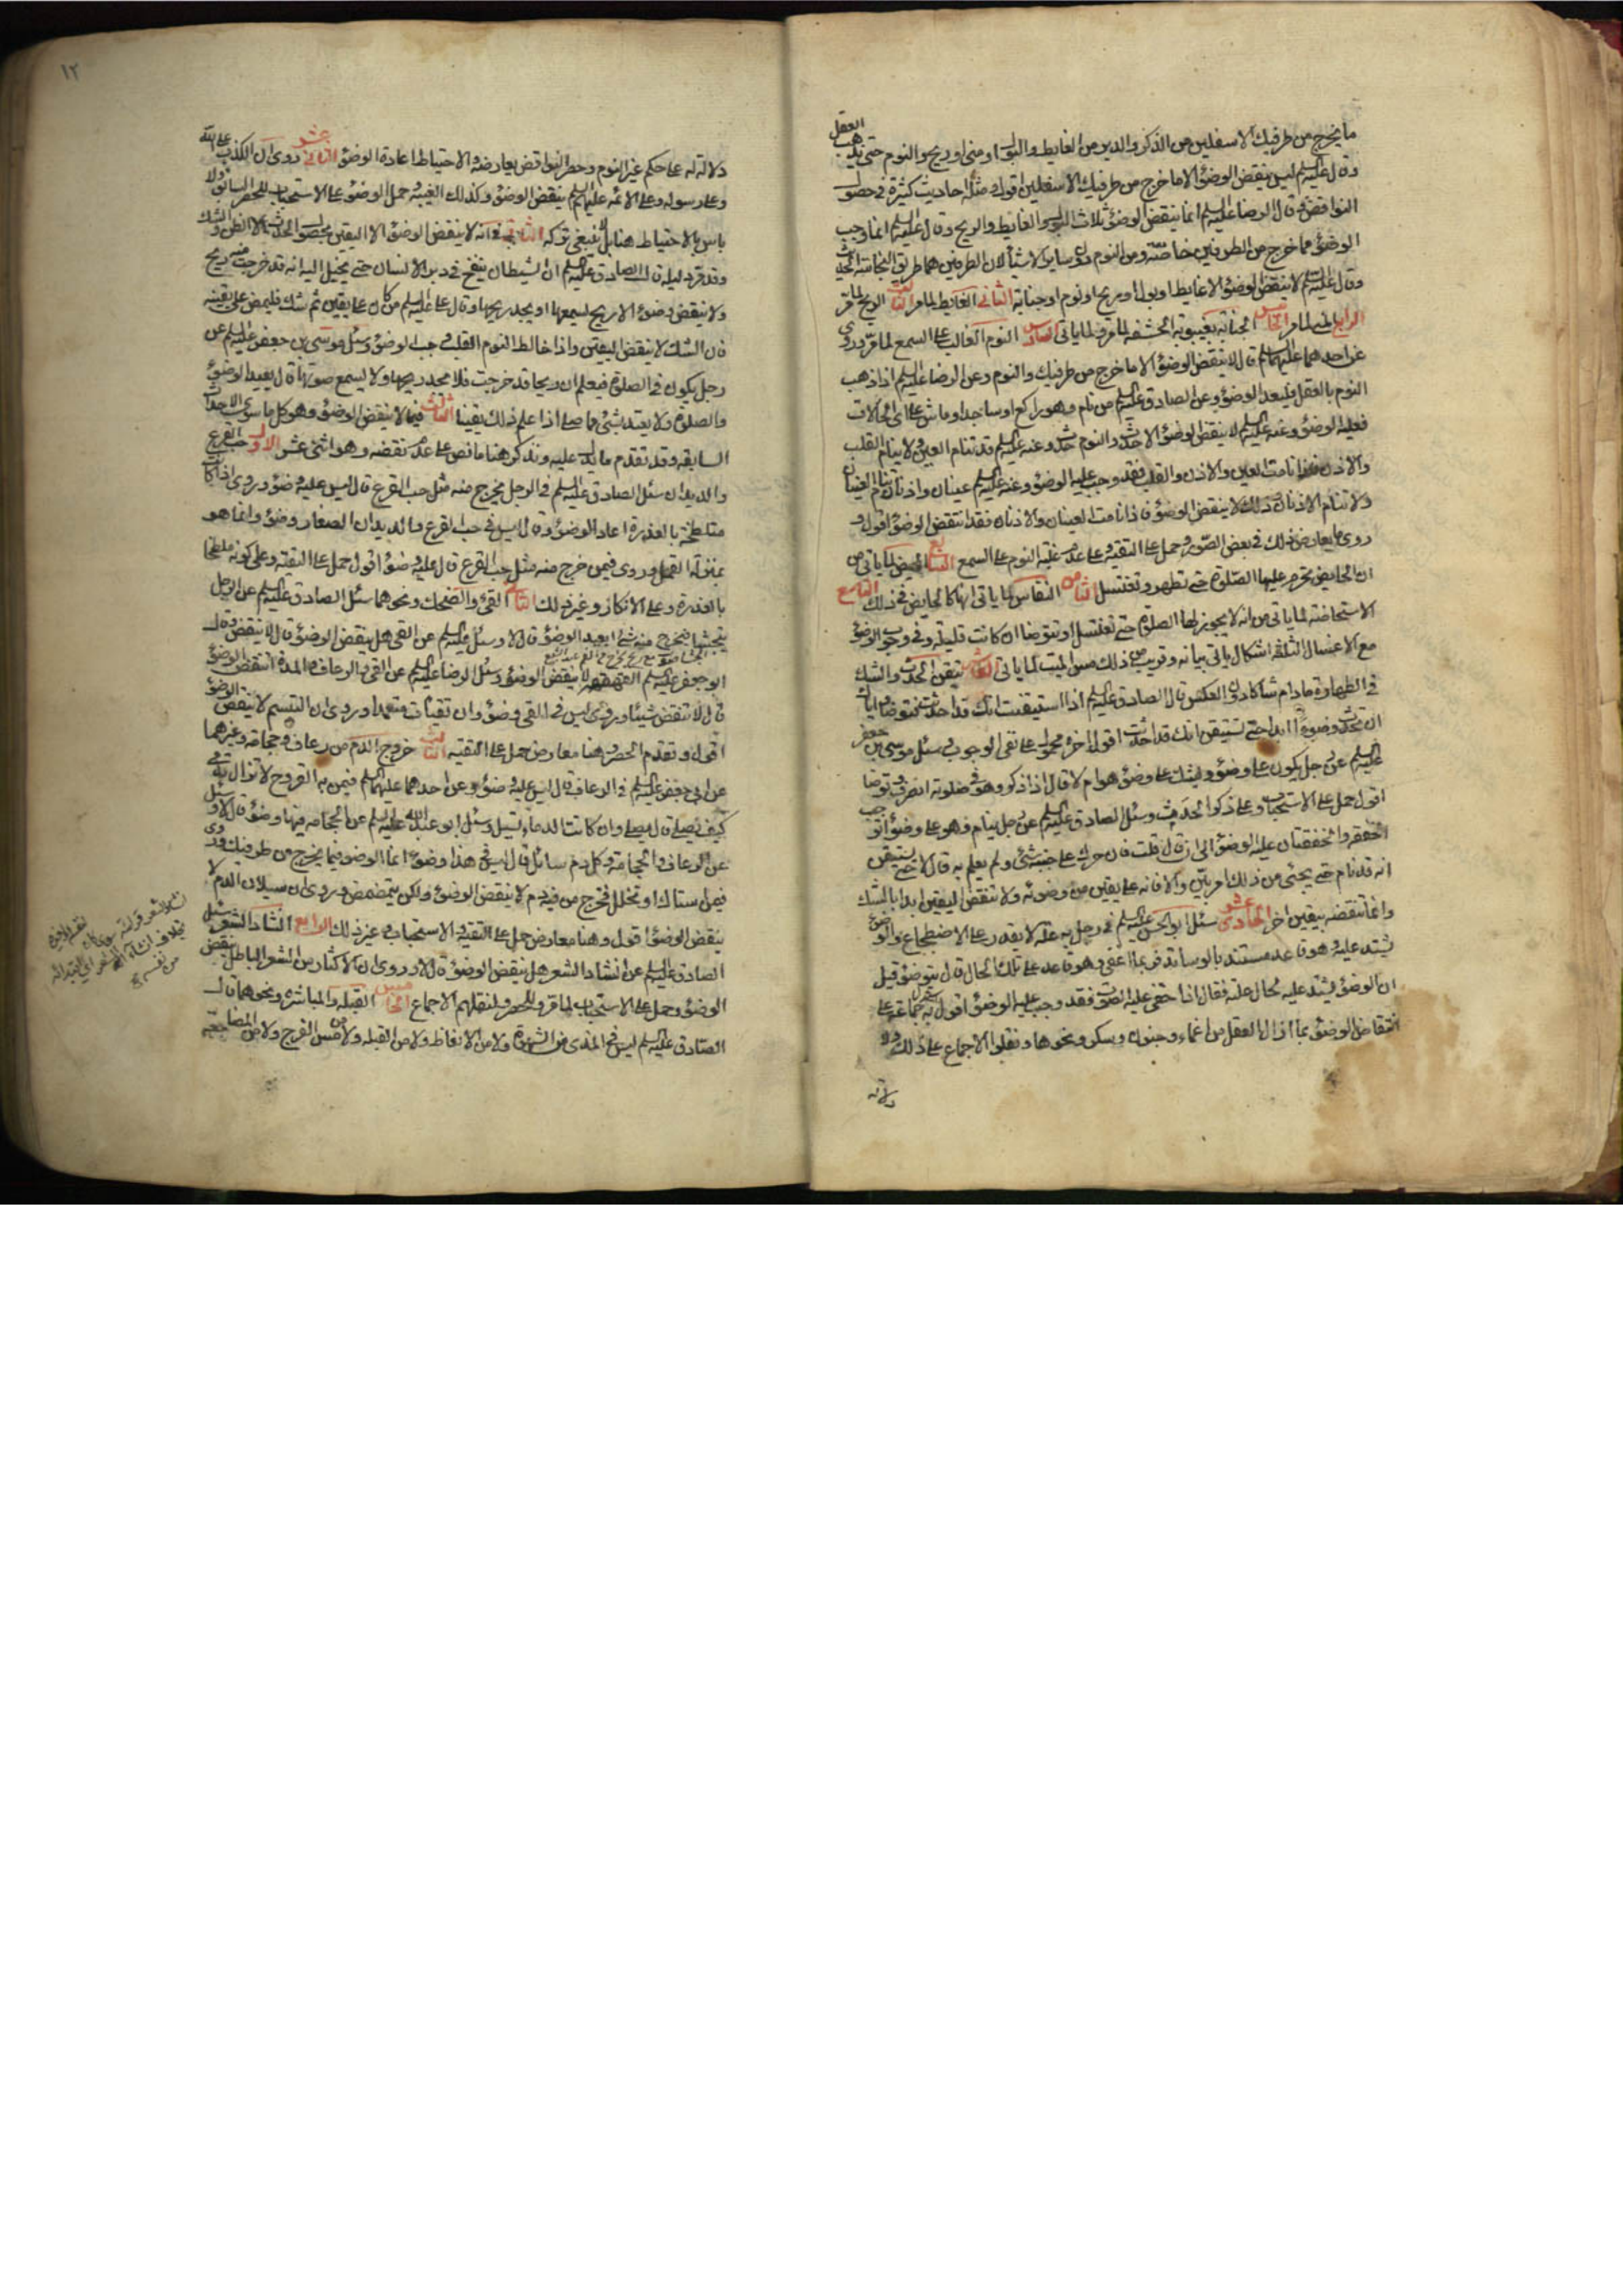 ما يخرج من طرفيك الاسفلين من الذكر والدبر من الغايط والبول او منى او ريح والنوم حتى يذهب العقل
وقال عليه السلم ليس ينقض الوضوء الا ما خرج من طرفيك الاسفلين اقول ومثله احاديث كثيرة في حصر
النواقض وقال الرضا عليه السلم انما ينقض الوضوء ثلاث البول والغايط والريح وقال عليه السلم انما وجب
الوضوء مما خرج من الطرفين خاصة ومن النوم دون ساير الاشياء لان الطرفين هما طريق النجاسة
وقال عليه السلم لا ينقض الوضوء الا غايط او بول او ريح او نوم او جنابة الثاني الغايط لما مر الثالث الريح لما مر
الرابع المنى لما مر الخامس الجنابة بغيبوبة الحشفة لما مر ولما ياتى السادس النوم الغالب على السمع لما مر وروى
عن احدهما عليهما السلم قال لا ينقض الوضوء الا ما خرج من طرفيك والنوم وعن الرضا عليه السلم اذا ذهب
النوم بالعقل فليعد الوضوء وعن الصادق عليه السلم من نام وهو راكع او ساجد او ماش على اى الحالات
فعليه الوضوء وعنه عليه السلم لا ينقض الوضوء الا حدث والنوم حدث وعنه عليه السلم قد تنام العين ولا ينام القلب
والاذن فاذا نامت العين والاذن والقلب فقد وجب عليه الوضوء وعنه عليه السلم عينان واذنان تنام العينان
ولا تنام الاذنان وذلك لا ينقض الوضوء فاذا نامت العينان والاذنان فقد انتقض الوضوء اقول و
روى ما يعارض ذلك في بعض الصور وحمل على التقية وعلى عدم غلبة النوم على السمع السابع الحيض لما ياتى من
ان الحايض تحرم عليها الصلوة حتى تطهر وتغتسل الثامن النفاس لما ياتى انها كالحايض في ذلك التاسع
الاستحاضة لما ياتى من انه لا يجوز لها الصلوة حتى تغتسل او تتوضا ان كانت قليلة وفي وجوب الوضوء
مع الاغسال الثلثة اشكال ياتى بيانه وقريب من ذلك مس الميت لما ياتى العاشر تيقن الحدث والشك
في الطهارة مادام شاكا دون العكس قال الصادق عليه السلم اذا استيقنت انك قد احدثت فتوضا واياك
ان تحدث وضوءا ابدا حتى تستيقن انك قد احدثت اقول اخره محمول على نفى الوجوب وسئل موسى بن جعفر
عليه السلم عن رجل يكون على وضوء ويشك على وضوء هو ام لا قال اذا ذكر وهو في صلوته انصرف وتوضا
اقول حمل على الاستحباب وعلى ذكر الحدث وسئل الصادق عليه السلم عن رجل ينام وهو على وضوء اتوجب
الخفقة والخفقتان عليه الوضوء الى ان قال قلت فان حرك على جنبه شئ ولم يعلم به قال لا حتى يستيقن
انه قد نام حتى يجئ من ذلك امر بين والا فانه على يقين من وضوئه ولا تنقض اليقين ابدا بالشك
وانما تنقضه بيقين اخر الحادى عشر سئل ابو الحسن عليه السلم في رجل به علة لا يقدر على الاضطجاع والوضوء
يشتد عليه وهو قاعد مستند بالوسائد فربما اغفى وهو قاعد على تلك الحال قال يتوضؤ قيل
ان الوضوء يشتد عليه لحال علته فقال اذا خفى عليه الصوت فقد وجب عليه الوضوء اقول استدل به جماعة على
انتقاض الوضوء بما ازال العقل من اغماء وجنون وسكر ونحوها ونقلوا الاجماع على ذلك وفى
دلالته
١٢
دلالته له على حكم غير النوم وحصر النواقض يعارضه والاحتياط اعادة الوضوء الثانى عشر روى ان الكذب على الله
وعلى رسوله وعلى الائمة عليهم السلم ينقض الوضوء وكذلك الغيبة وحمل الوضوء على الاستحباب للحصر السابق ولا
باس بالاحتياط هنا بل لا ينبغى تركه الثانى في انه لا ينقض الوضوء الا اليقين بحصول الحدث لا الظن والشك
وقد مر دليله وقال الصادق عليه السلم ان الشيطان ينفخ في دبر الانسان حتى يخيل اليه انه قد خرجت منه ريح
ولا ينقض وضوءه الا ريح يسمعها او يجد ريحها وقال على عليه السلم من كان على يقين ثم شك فليمض على يقينه
فان الشك لا ينقض اليقين واذا خالط النوم القلب وجب الوضوء وسئل موسى بن جعفر عليه السلم عن
رجل يكون في الصلوة فيعلم ان ريحا قد خرجت فلا يجد ريحها ولا يسمع صوتها قال يعيد الوضوء
والصلوة ولا يعتد بشئ مما صلى اذا علم ذلك يقينا الثالث فيما لا ينقض الوضوء وهو كل ما سوى الاحداث
السابقة وقد تقدم ما يدل عليه ونذكر هنا ما نص على عدم نقضه وهو اثنى عشر الاول حب القرع
والديدان سئل الصادق عليه السلم في الرجل يخرج منه مثل حب القرع قال ليس عليه وضوء وروى اذا كانت
متلطخة بالعذرة اعاد الوضوء وقال ليس في حب القرع والديدان الصغار وضوء وانما هو
بمنزلة القمل وروى فيمن خرج منه مثل حب القرع قال عليه وضوء اقول حمل على التقية وعلى كونه ملطخا
بالعذرة وعلى الانكار وغير ذلك الثانى القئ والضحك ونحوهما سئل الصادق عليه السلم عن الرجل
يتجشا فيخرج منه شئ ايعيد الوضوء قال لا وسئل عليه السلم عن القئ هل ينقض الوضوء قال لا ينقض وقال
ابو جعفر عليه السلم القهقهة لا ينقض الوضوء وسئل الرضا عليه السلم عن القئ والرعاف والمدة اتنقض الوضوء
قال لا تنقض شيئا وروى ليس في القئ وضوء وان تقيات متعمدا وروى ان التبسم لا ينقض الوضوء
اقول وتقدم الحصر وهنا معارض حمل على التقية الثالث خروج الدم من رعاف وحجامة وغيرهما
عن ابى جعفر عليه السلم في الرعاف قال ليس عليه وضوء وعن احدهما عليهما السلم فيمن به القروح لا تزال تدمى
كيف يصلى قال يصلى وان كانت الدماء تسيل وسئل ابو عبد الله عليه السلم عن الحجامة فيها وضوء قال لا وسئل
عن الرعاف والحجامة وكل دم سائل قال ليس في هذا وضوء انما الوضوء فيما يخرج من طرفيك وروى
فيمن استاك او تخلل فخرج من فيه دم لا ينقض الوضوء ولكن يتمضمض وروى ان سيلان الدم لا
ينقض الوضوء اقول وهنا معارض حمل على التقية والاستحباب وغير ذلك الرابع انشاد الشعر سئل
الصادق عليه السلم عن انشاد الشعر هل ينقض الوضوء قال لا وروى ان الاكثار من الشعر الباطل ينقض
الوضوء وحمل على الاستحباب لما مر وللحصر ولنقلهم الاجماع الخامس القبلة والمباشرة ونحوهما قال
الصادق عليه السلم ليس في المذى من الشهوة ولا من الانعاظ ولا من القبلة ولا من مس الفرج ولا من المضاجعة